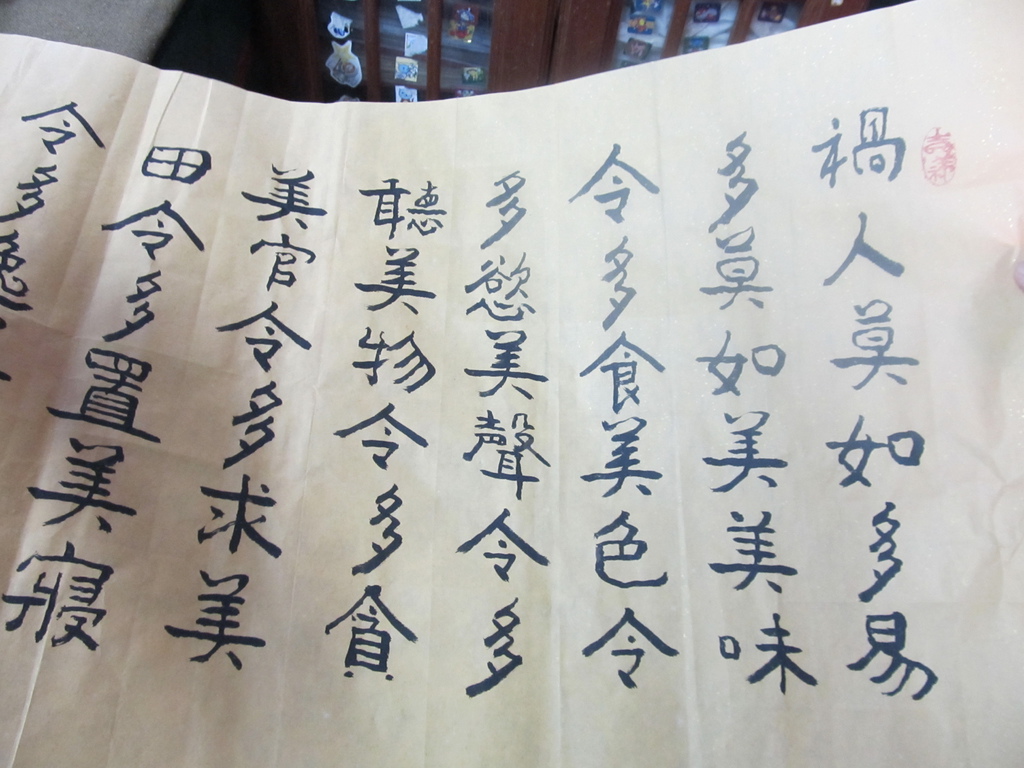 吉祥
禍人莫如多易
多莫如美美味
令多食美色令
多慾美聲令多
聽美物令多貪
美官令多求美
田令多置美寢
令多